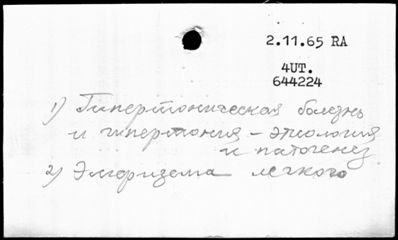 2.11.65 RA
4UT.
644224
1) Гипертоническая болезнь
и гипертония – этиология
и патогенез
2) Эмфизема легкого